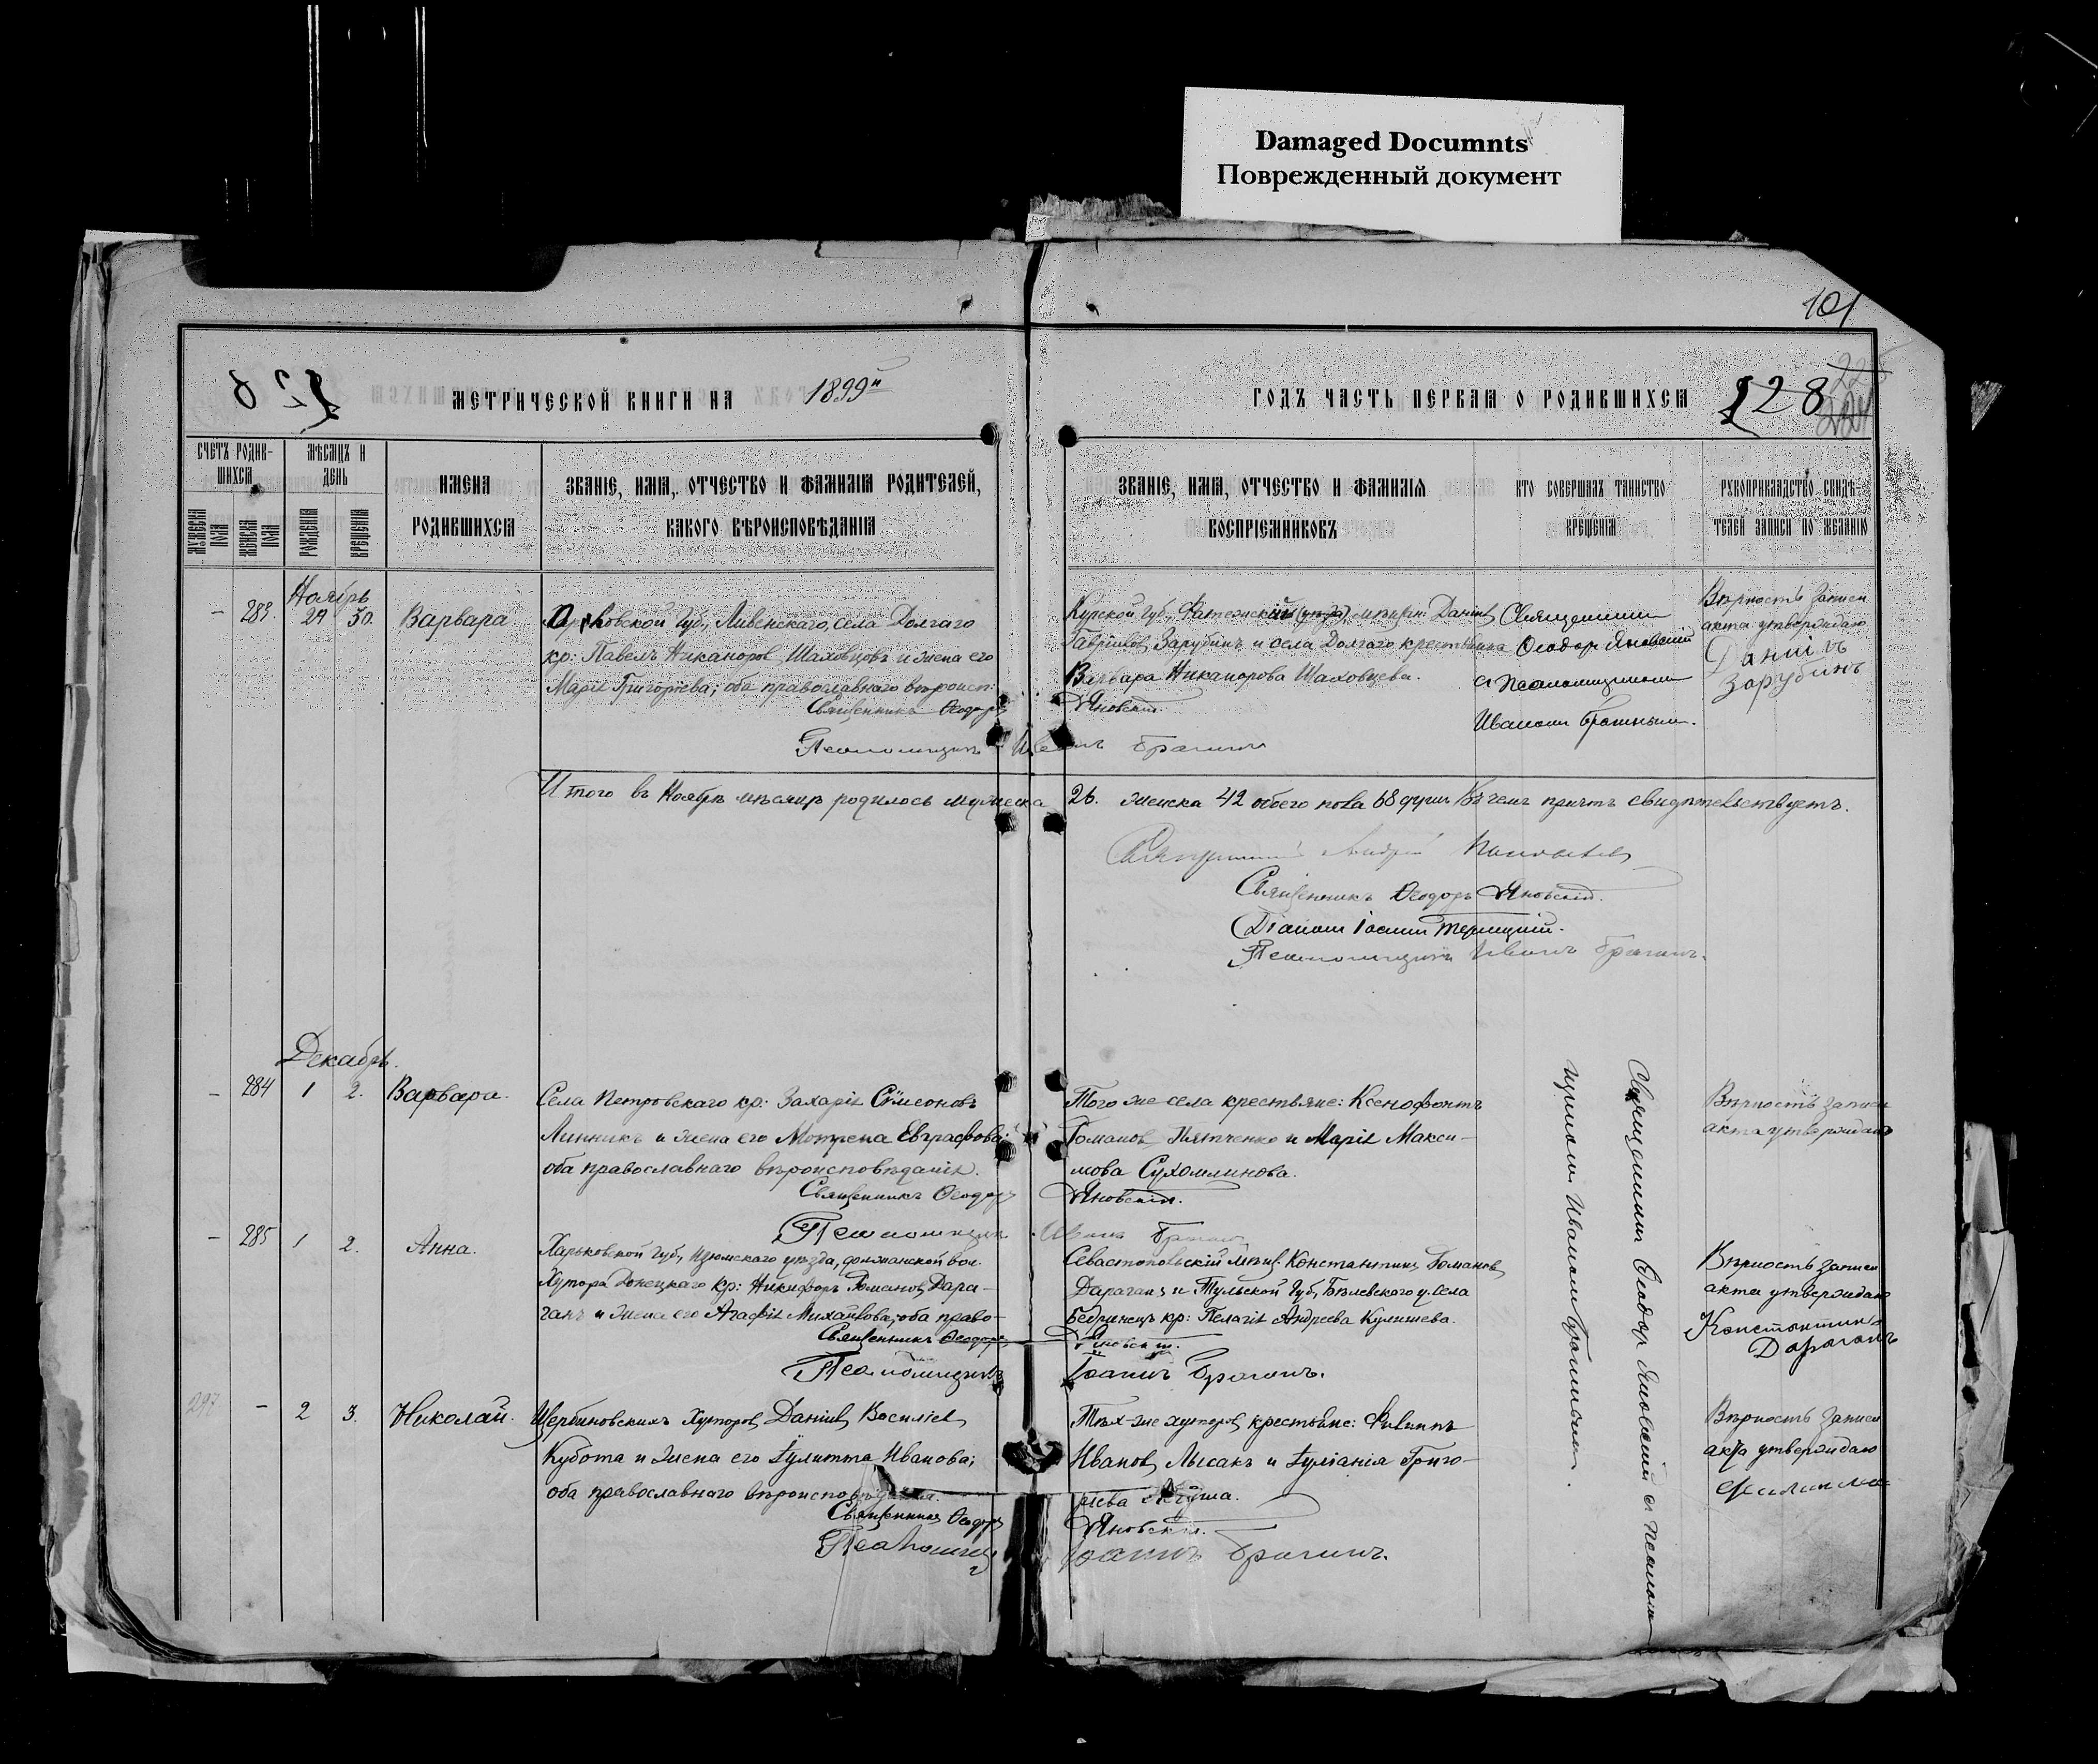 Damaged Documnts
Поврежденный документ
101
128
МЕТРИЧЕСКОЙ КНИГИ НА 1899й
ГОДЪ ЧАСТЬ ПЕРВАЯ О РОДИВШИХСЯ
128
СЧЕТЪ РОДИВ-
ШИХСЯ
МУЖЕСКА ПОЛА
ЖЕНСКА ПОЛА
МѢСЯЦЪ И
ДЕНЬ
РОЖДЕНІЯ
КРЕЩЕНІЯ
ИМЕНА
РОДИВШИХСЯ
ЗВАНІЕ, ИМЯ, ОТЧЕСТВО И ФАМИЛІЯ РОДИТЕЛЕЙ,
КАКОГО ВѢРОИСПОВѢДАНІЯ
ЗВАНІЕ, ИМЯ, ОТЧЕСТВО И ФАМИЛІЯ
ВОСПРІЕМНИКОВЪ
КТО СОВЕРШАЛЪ ТАИНСТВО
КРЕЩЕНІЯ
РУКОПРИКЛАДСТВО СВИДѢ-
ТЕЛЕЙ ЗАПИСИ ПО ЖЕЛАНІЮ
Ноябрь
- 283. 29 30. Варвара
Орловской Губ., Ливенскаго, села Долгаго
кр: Павелъ Никаноровъ Шаховцовъ и жена его
Марія Григоріева; оба православнаго вѣроисп:
Священникъ Ѳеодоръ Яновскій.
Псаломщикъ Иванъ Брагинъ
Курской Губ., Фатежскій мѣщан: Даніилъ
Гавріиловъ Зарубинъ и села Долгаго крестьянка
Варвара Никанорова Шаховцева.
Священникъ
Ѳеодоръ Яновскій
съ Псаломщикомъ
Иваномъ Брагинымъ.
Вѣрность записи
акта утверждаю
Даніилъ
Зарубинъ
Итого въ Ноябрѣ мѣсяцѣ родилось мужеска 26. женска 42 обоего пола 68 душъ Въ чемъ причтъ свидѣтельствуетъ.
Священникъ Андрей
Священникъ Ѳеодоръ Яновскій.
Діаконъ Іоаннъ
Псаломщикъ Иванъ Брагинъ.
Декабрь.
- 284 1 2. Варвара.
Села Петровскаго кр: Захарія Сѵмеоновъ
Линникъ и жена его Мотрена Евграфова;
оба православнаго вѣроисповѣданія.
Священникъ Ѳеодоръ Яновскій.
Псаломщикъ Иванъ Брагинъ
Того же села крестьяне: Ксенофонтъ
Романовъ и Марія Макси-
мова Сухомлинова.
Вѣрность записи
акта утверждаю
- 285 1 2. Анна.
Харьковской Губ., Изюмскаго уѣзда, вол.
Хутора Донецкаго кр: Никифоръ Романовъ Дара-
ганъ и жена его Агафія Михайлова; оба право-
Священникъ Ѳеодоръ Яновскій.
Псаломщикъ Іоаннъ Брагинъ.
Севастопольскій мѣщ: Константинъ Романовъ
Дараганъ и Тульской Губ., Бѣлевскаго у. села
кр: Пелагія Андреева Кулишева.
Вѣрность записи
акта утверждаю
Константинъ
Дараганъ
297 - 2 3. Николай.
Щербиновскихъ Хуторовъ Даніилъ Василіевъ
Кубота и жена его Іулитта Иванова;
оба православнаго вѣроисповѣданія.
Священникъ Ѳеодоръ Яновскій.
Псаломщикъ Іоаннъ Брагинъ.
Тѣхъ-же хуторовъ крестьяне: Филиппъ
Ивановъ Лысакъ и Іуліанія Григо-
ріева
Вѣрность записи
акта утверждаю
Священникъ Ѳеодоръ Яновскій съ Псалом-
щикомъ Иваномъ Брагинымъ.